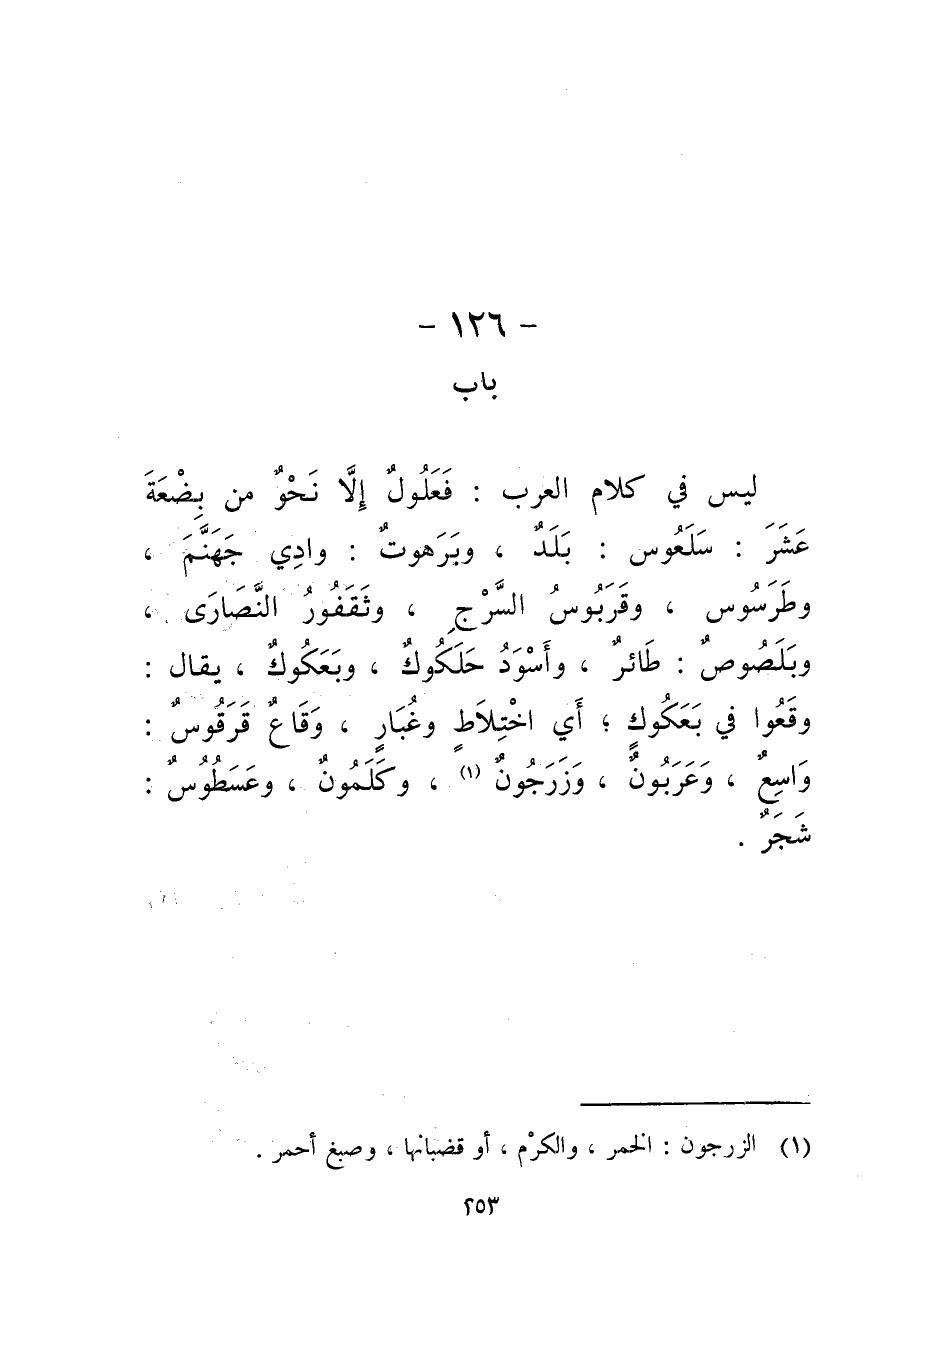 - ١٢٦ -
باب
ليس في كلام العرب : فَعَلُولٌ إِلَّا نَحْوٌ من بِضْعَةَ
عَشَرَ : سَلَعُوس : بَلَدٌ ، وبَرَهوتٌ : وادِي جَهَنَّمَ ،
وطَرَسُوس ، وقَرَبُوسُ السَّرْجِ ، وثَقَفُورُ النَّصَارَى ،
وبَلَصُوصٌ : طَائرٌ ، وأَسْوَدُ حَلَكُوكٌ ، وبَعَكُوكٌ ، يقال :
وقَعُوا في بَعَكُوكٍ ؛ أَي اخْتِلاَطٍ وغُبَارٍ ، وَقَاعٌ قَرَقُوسٌ :
وَاسِعٌ ، وَعَرَبُونٌ ، وَزَرَجُونٌ (١) ، وكَلَمُونٌ ، وعَسَطُوسٌ :
شَجَرٌ .
(١) الزرجون : الخمر ، والكرْم ، أو قضبانها ، وصبغ أحمر .
٢٥٣